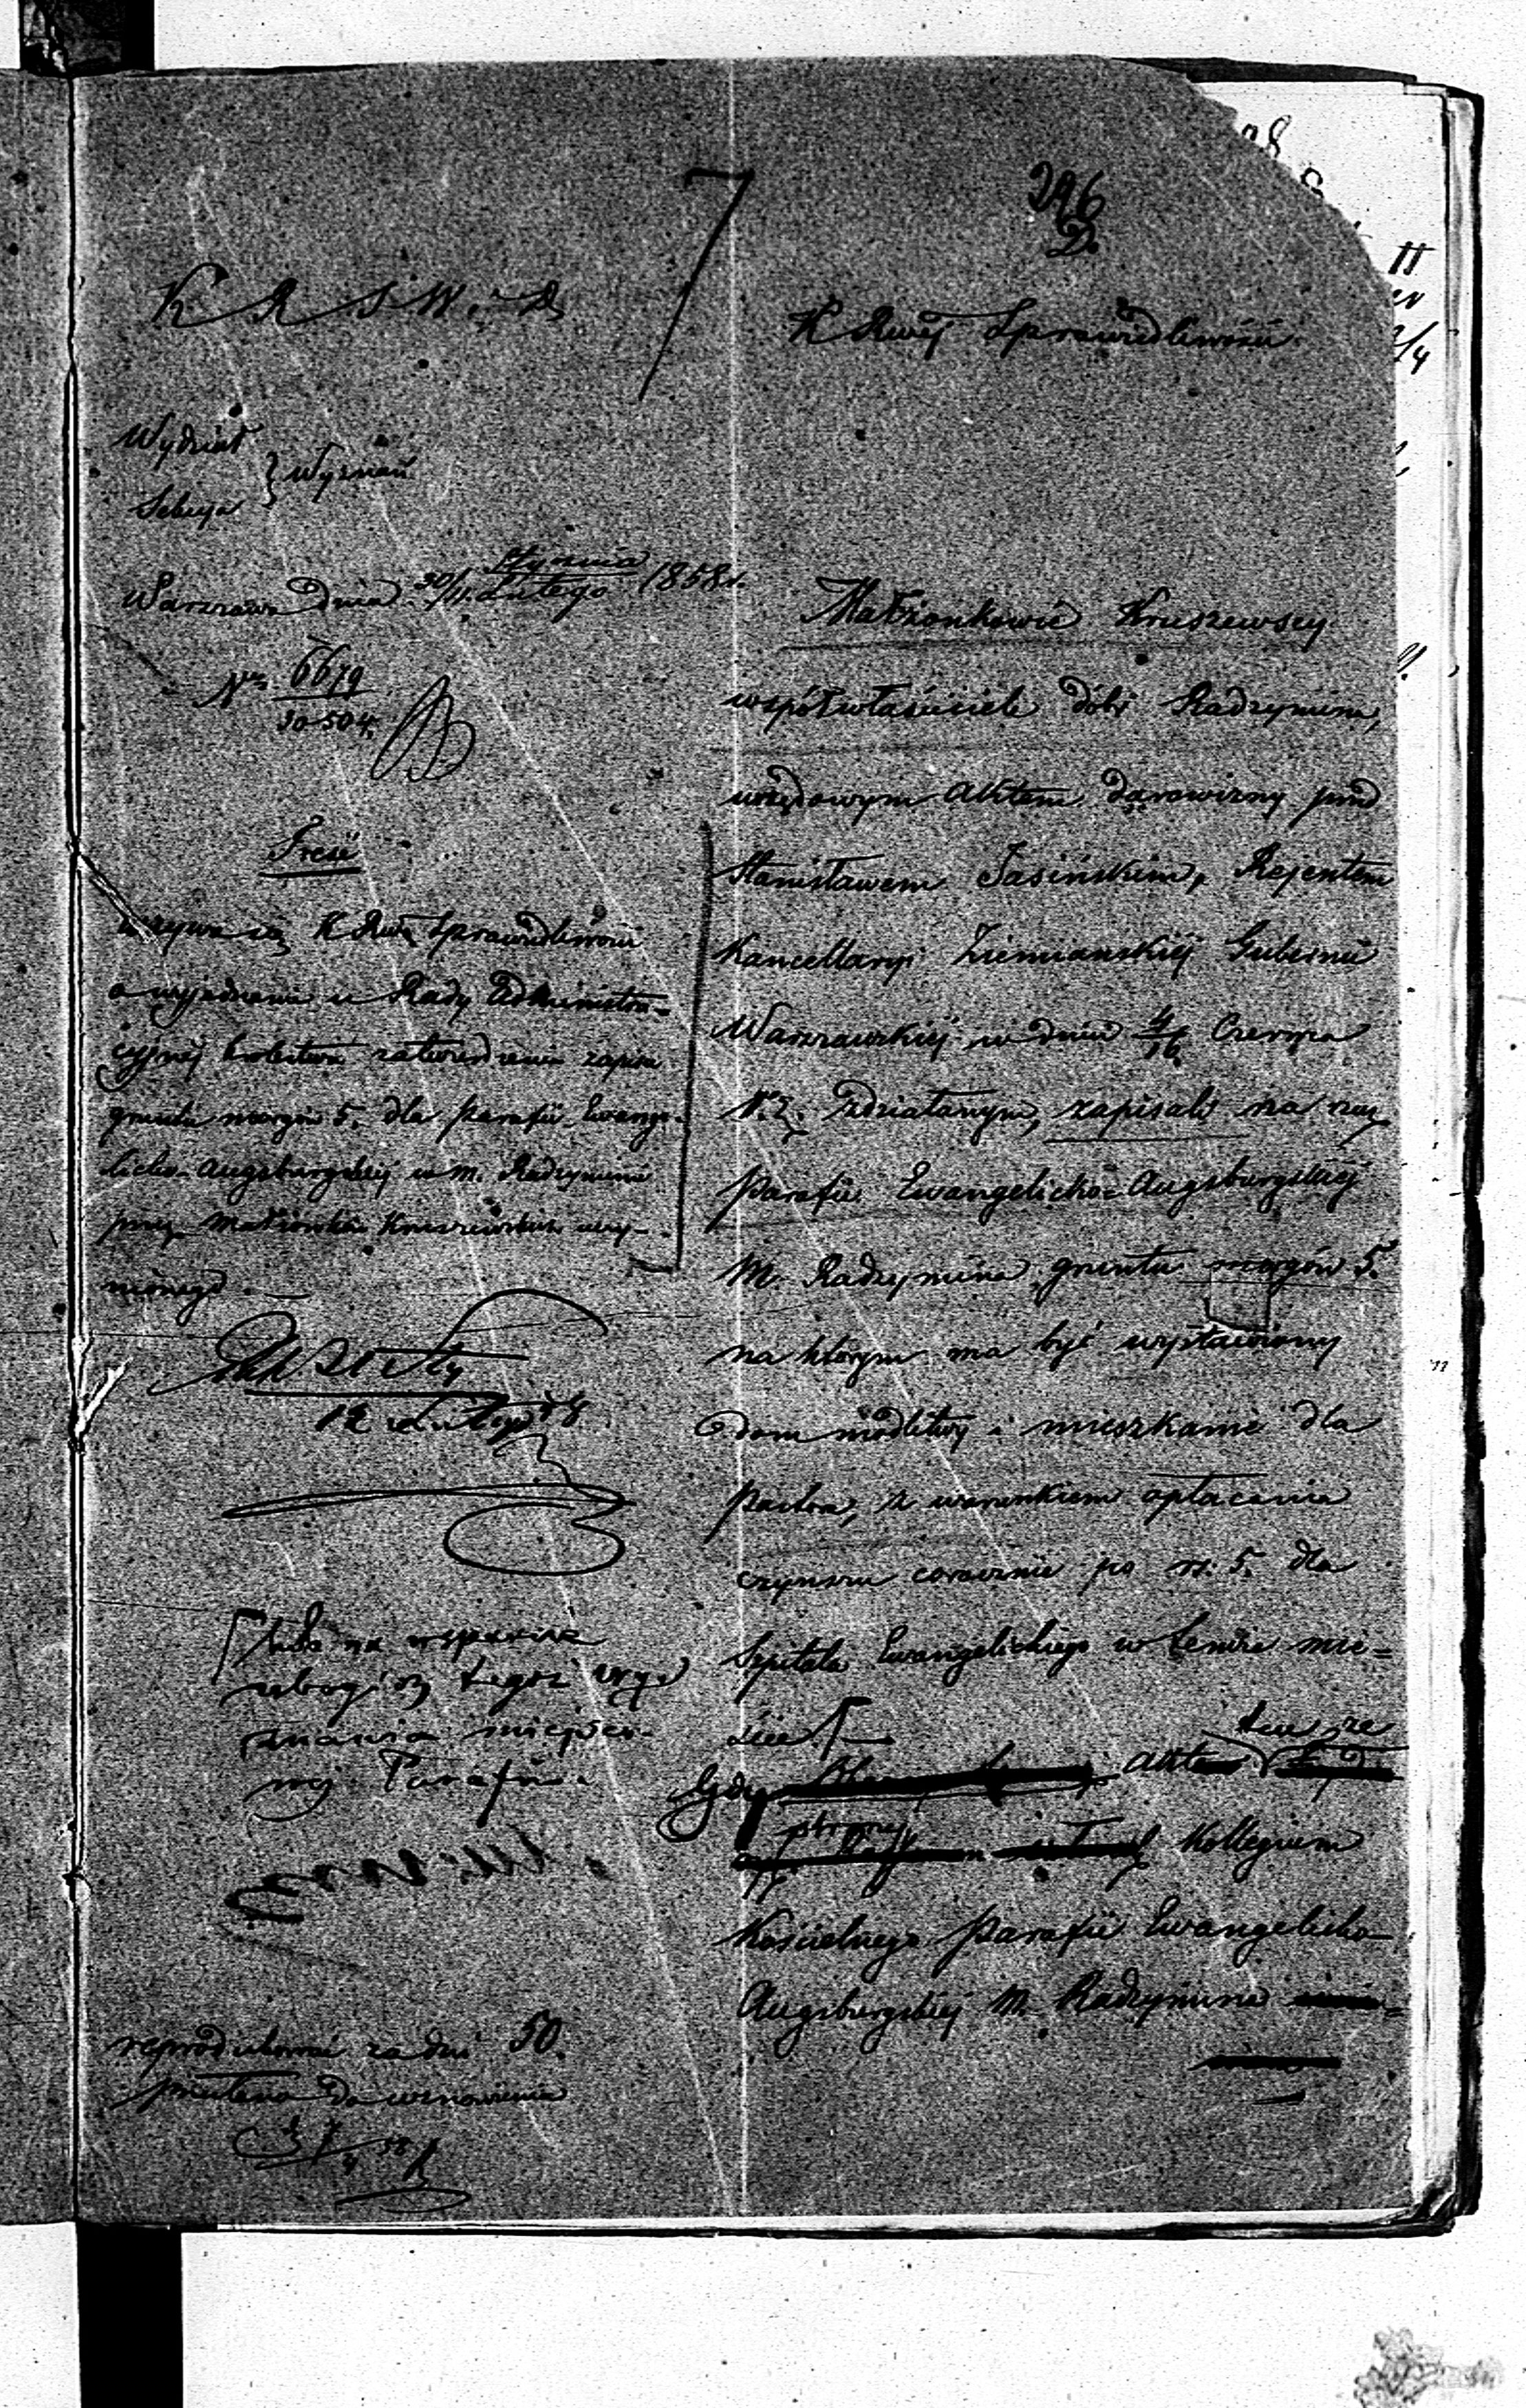 7
296
K R S W. i D
K Rząd. Sprawiedliwości.
Wydział
Sekcya } Wyznań
Warszawa dnia 30/11 Stycznia/Lutego 1858 r.
Nr 6679/30504.
Treść
wzywa się K Rzą Sprawiedliwości
o wyjednanie u Rady Administra-
cyjnej Królestwa zatwierdzenia zapisu
gruntu morgów 5. dla Parafii Ewange-
licko-Augsburgskiej w m. Radzyminie
przez Małżonków Kruszewskich uczy-
nionego.
12 Lutego 58
lub na wsparcie
ubogich tegoż wy-
znania miejsco-
wej Parafii.
reprodukować za dni 50.
do wznowienia
Małżonkowie Kruszewscy
współwłaściciele dóbr Radzymina,
urzędowym aktem darowizny przed
Stanisławem Jasińskim, Rejentem
Kancellaryi Ziemiańskiej Gubernii
Warszawskiej w dniu 4/16 Czerwca
r. z. zdziałanym, zapisali na rzecz
Parafii Ewangelicko-Augsburgskiej
M. Radzymina gruntu morgów 5.
na którym ma być wystawiony
dom modlitwy i mieszkanie dla
Pastora, z warunkiem opłacania
czynszu corocznie po rs. 5. dla
Szpitala Ewangelickiego w temże mie-
ście
Gdy akt ten ze
strony Kollegium
Kościelnego Parafii Ewangelicko-
Augsburgskiej M. Radzymina